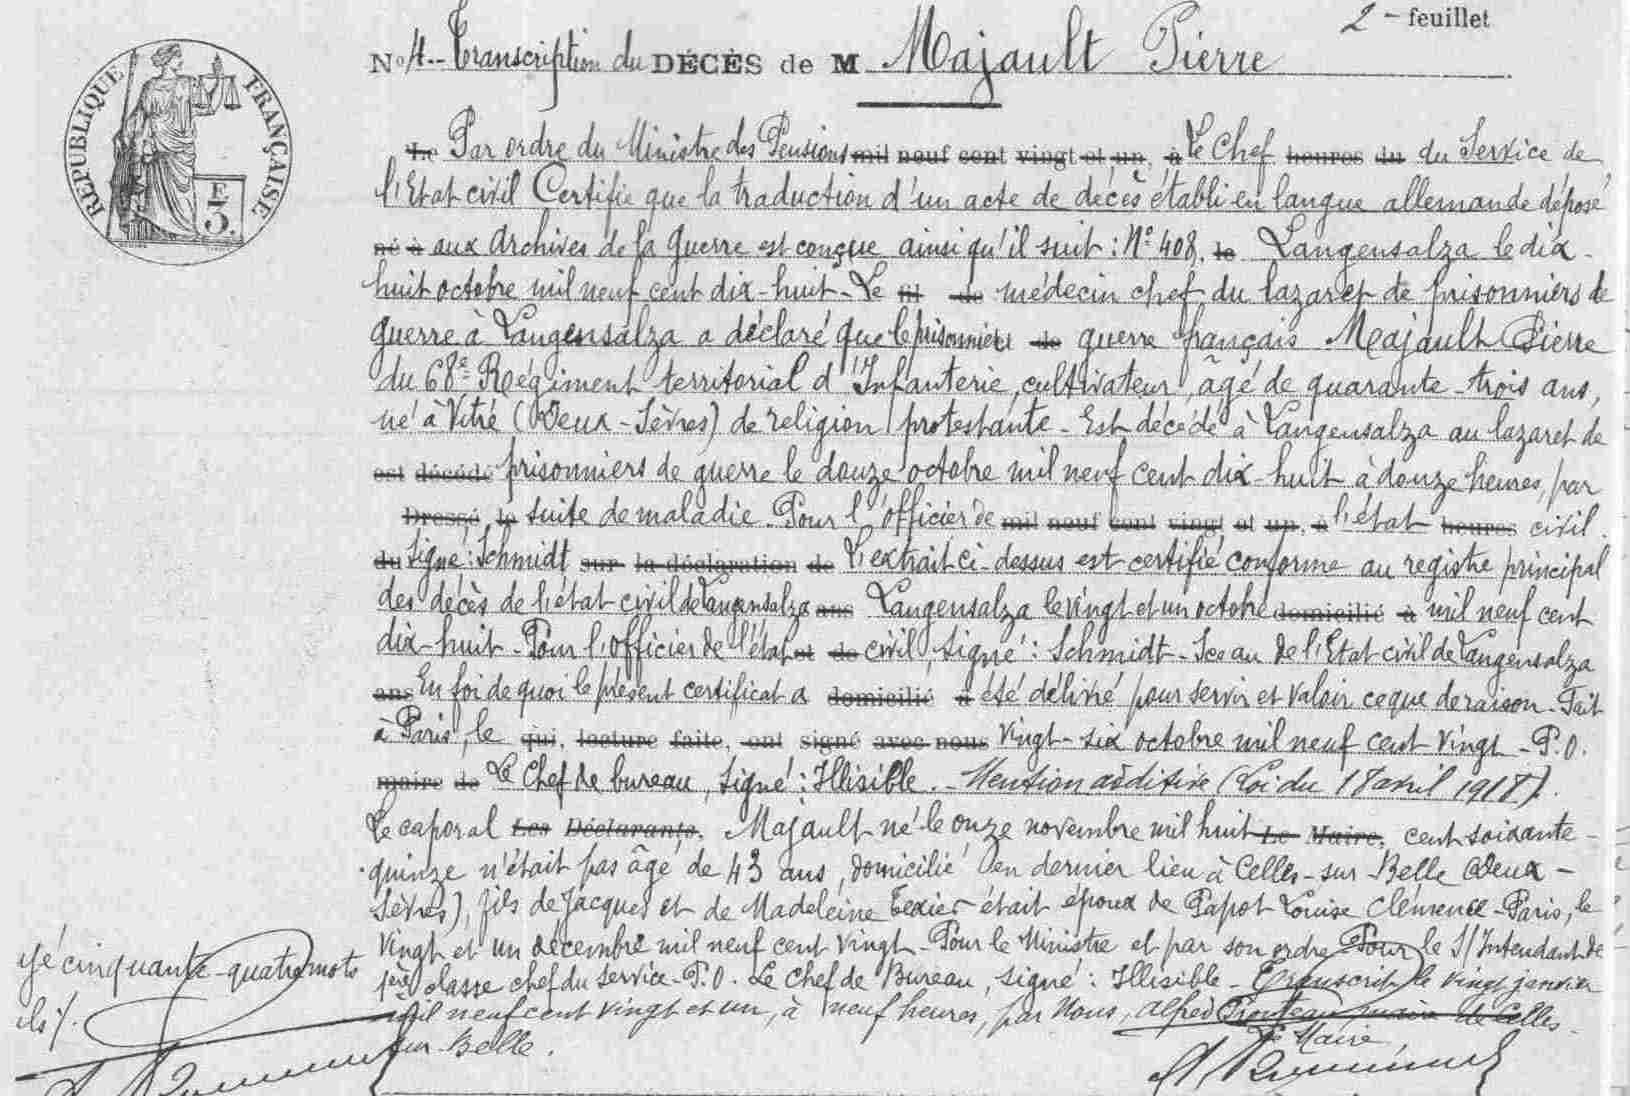 2 - feuillet
RÉPUBLIQUE FRANÇAISE
F
3.
No 4.- Transcription du DÉCÈS de M Majault Pierre
Le Par ordre du Ministre des Pensions mil neuf cent vingt et un, à Le Chef heures du du Service de
l'Etat civil Certifie que la traduction d'un acte de décès établi en langue allemande déposé
né à aux Archives de la Guerre est conçue ainsi qu'il suit : No 408. le Langensalza le dix-
huit octobre mil neuf cent dix-huit - Le et de médecin chef du lazaret de prisonniers de
guerre à Langensalza a déclaré que le prisonnier de guerre français Majault Pierre
du 68e Régiment territorial d'Infanterie, cultivateur, âgé de quarante-trois ans,
né à Vitré (Deux-Sèvres) de religion protestante - Est décédé à Langensalza au lazaret de
est décédé prisonniers de guerre le douze octobre mil neuf cent dix-huit à douze heures, par
Dressé le suite de maladie - Pour l'officier de mil neuf cent vingt et un, à l'état heures civil.
du Signé : Schmidt sur la déclaration de L'extrait ci-dessus est certifié conforme au registre principal
des décès de l'état civil de Langensalza ans Langensalza le vingt et un octobre domicilié à mil neuf cent
dix-huit - Pour l'officier de l'état et de civil, Signé : Schmidt - Sceau de l'Etat civil de Langensalza
ans En foi de quoi le présent certificat a domicilié à été délivré pour servir et valoir ce que de raison - Fait
à Paris, le qui, lecture faite, ont signé avec nous vingt-six octobre mil neuf cent vingt - P.O.
maire de Le Chef de bureau, Signé : Illisible. - Mention additive (Loi du 18 avril 1918).
Le caporal Les Déclarants, Majault né le onze novembre mil huit Le Maire, cent soixante-
quinze n'était pas âgé de 43 ans, domicilié en dernier lieu à Celles-sur-Belle (Deux-
Sèvres), fils de Jacques et de Madeleine Texier était époux de Papot Louise Clémence - Paris, le
vingt et un décembre mil neuf cent vingt - Pour le Ministre et par son ordre Pour le S/Intendant de
1ère classe chef du service - P.O. Le Chef de Bureau, Signé : Illisible - Transcrit le vingt janvier
mil neuf cent vingt et un, à neuf heures, par Nous, Alfred maire de Celles-
sur-Belle.
Le Maire,
yé cinquante-quatre mots
uls/.